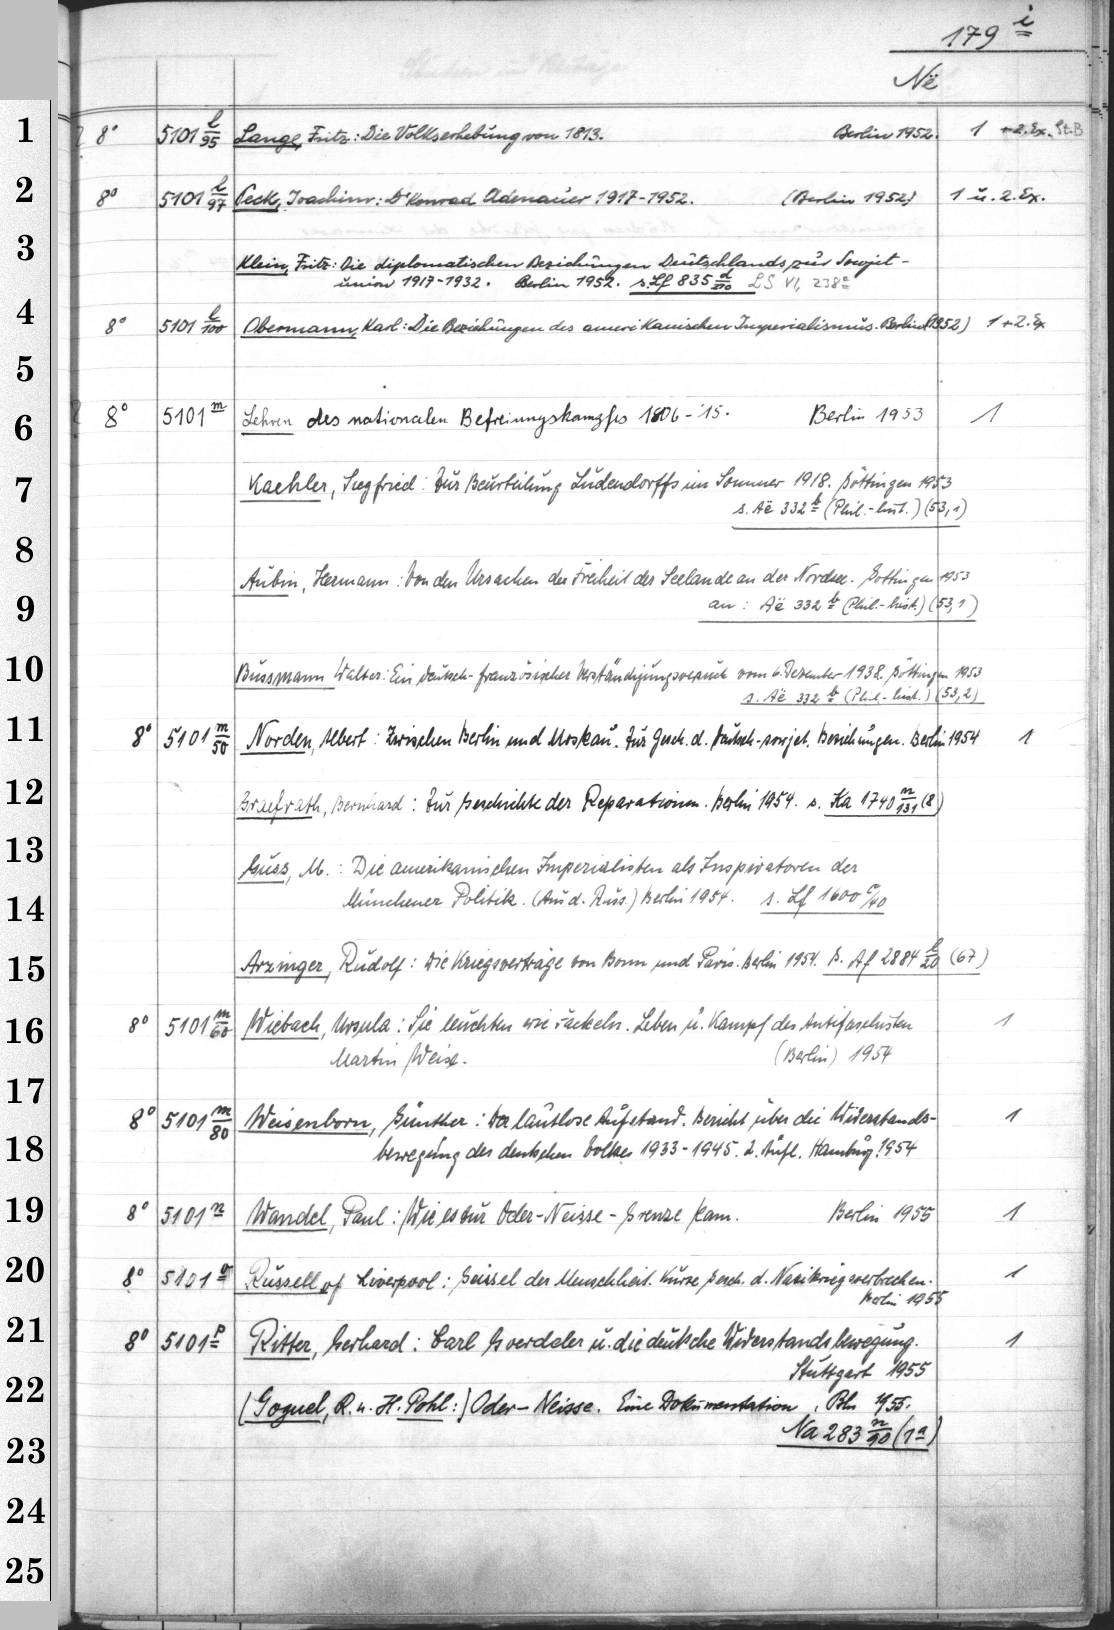 179 i
Në
1 8° 5101 l/95 Lange, Fritz: Die Volkserhebung von 1813. Berlin 1952. 1 +2.Ex. St.B
2 8° 5101 l/97 Peck, Joachim: Dr Konrad Adenauer 1917-1952. (Berlin 1952) 1 u. 2. Ex.
3 Klein, Fritz: Die diplomatischen Beziehungen Deutschlands zur Sowjet-
union 1917-1932. Berlin 1952. s. Lf 835 d/210 LS VI, 238
4 8° 5101 l/100 Obermann, Karl: Die Beziehungen des amerikanischen Imperialismus. Berlin (1952) 1+2. Ex
5
6 8° 5101 m Lehren des nationalen Befreiungskampfes 1806-'15. Berlin 1953 1
7 Kaehler, Siegfried: Zur Beurteilung Ludendorffs im Sommer 1918. Göttingen 1953
s. Aë 332 b (Phil.-hist.) (53,1)
8
Aubin, Hermann: Von den Ursachen der Freiheit der Seelande an der Nordsee. Göttingen 1953
9 an: Aë 332 b (Phil.-hist.) (53,1)
10 Bussmann Walter: Ein deutsch-französischer Verständigungsversuch vom 6. Dezember 1938. Göttingen 1953
s. Aë 332 b (Phil.-hist.) (53,2)
11 8° 5101 m/50 Norden, Albert: Zwischen Berlin und Moskau. Zur Gesch. d. deutsch-sowjet. Beziehungen. Berlin 1954 1
12 Graefrath, Bernhard: Zur Geschichte der Reparationen. Berlin 1954. s. Ka 1740 n/131 (8)
13 Guss, M.: Die amerikanischen Imperialisten als Inspiratoren der
14 Münchener Politik. (Aus d. Russ.) Berlin 1954. s. Lf 1600 a/40
15 Arzinger, Rudolf: Die Kriegsverträge von Bonn und Paris. Berlin 1954. s. Af 2884 l/20 (67)
16 8° 5101 m/60 Wiebach, Ursula: Sie leuchten wie Fackeln. Leben u. Kampf des Antifaschisten 1
Martin Weise. (Berlin) 1954
17
8° 5101 m/80 Weisenborn, Günther: Der lautlose Aufstand. Bericht über die Widerstands- 1
18 bewegung des deutschen Volkes 1933-1945. 2. Aufl. Hamburg 1954
19 8° 5101 n Wandel, Paul: Wie es zur Oder-Neisse-Grenze kam. Berlin 1955 1
20 8° 5101 o Russell of Liverpool: Geissel der Menschheit. Kurze Gesch. d. Nazikriegsverbrechen. 1
Berlin 1955
21 8° 5101 p Ritter, Gerhard: Carl Goerdeler u. die deutsche Widerstandsbewegung. 1
Stuttgart 1955
22 [Goguel, R. u. H. Pohl:] Oder-Neisse. Eine Dokumentation, Bln 1955.
23 Na 283 n/90 (1a)
24
25